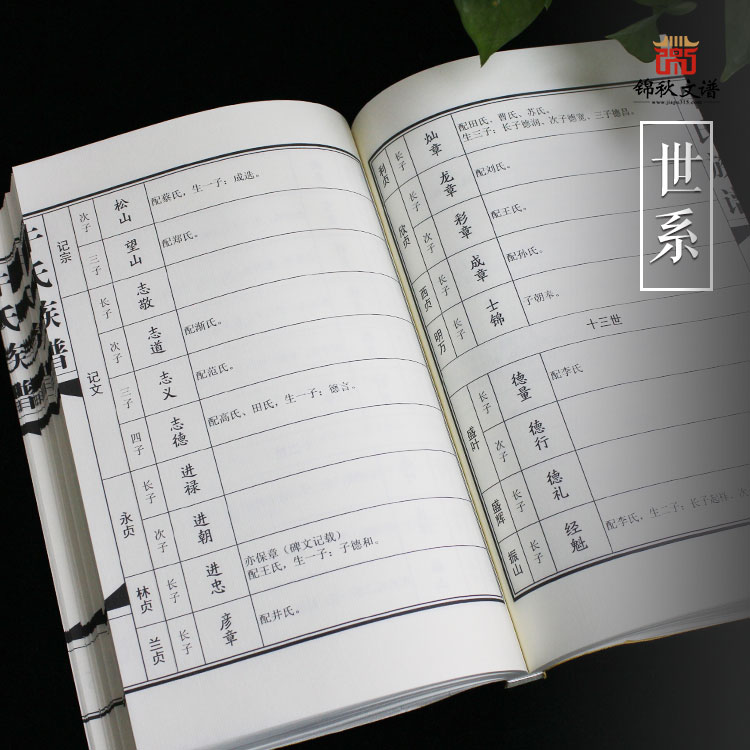 锦秋文谱
www.jiapu315.com
世系
氏族谱
记宗
次子
松山
配蔡氏，生一子：成选。
三子
望山
配郑氏。
记文
长子
志敬
次子
志道
配渐氏。
三子
志义
配范氏。
四子
志德
配高氏、田氏，生一子：德言。
永贞
长子
进禄
次子
进朝
林贞
长子
进忠
亦保章（碑文记载）
配王氏，生一子：子德和。
兰贞
长子
彦章
配井氏。
利贞
长子
灿章
配田氏、曹氏、苏氏。
生三子：长子德润、次子德宽、三子德昌。
欣贞
长子
龙章
配刘氏。
次子
彩章
配王氏。
西贞
长子
成章
配孙氏。
明万
长子
士锦
子朝丰。
十三世
盛叶
长子
德量
配李氏
次子
德行
盛辉
长子
德礼
振山
长子
经魁
配李氏，生二子：长子起祥、